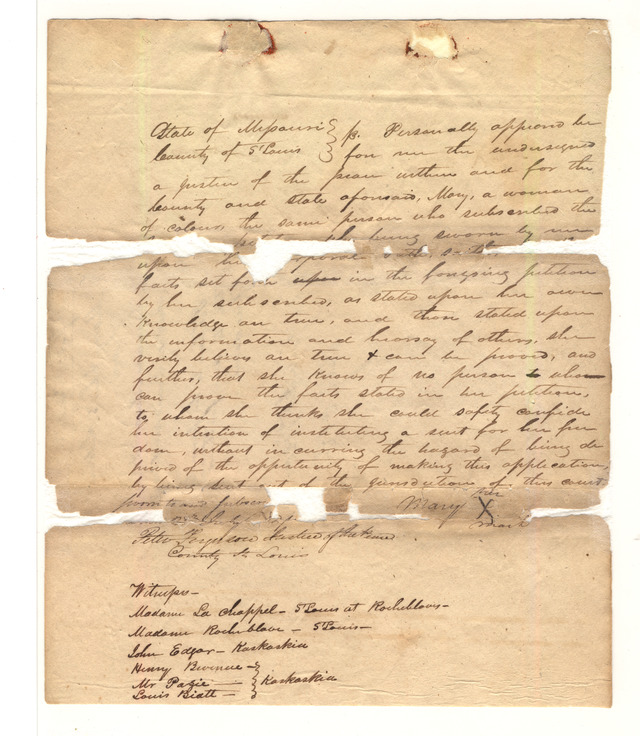 State of Missouri } ss. Personally appeared be
County of St Louis } fore me the undersigned
a justice of the peace within and for the
County and state aforesaid, Mary, a woman
of colour, the same person who subscribed the
being sworn by me
upon her corporal oath,
facts set forth upon in the foregoing petition
by her subscribed, as stated upon her own
Knowledge are true, and those stated upon
the information and hearsay of others, she
verily believes are true & can be proved, and
further, that she knows of no person who
can prove the facts stated in her petition,
to whom she thinks she could safely confide
her intention of instituting a suit for her free
dom, without incurring the hazard of being de
prived of the opportunity of making this application,
by being sent out of the jurisdiction of this court
Sworn to and subscri
Mary her X mark
Peter Ferguson Justice of the Peace
County St Louis
Witnesses –
Madame La Chappel – St Louis at Rocheblaves –
Madame Rocheblave – St Louis –
John Edgar – Kaskaskia
Henry Bevenue – }
Mr Pazie – } Kaskaskia
Louis Biatt – }